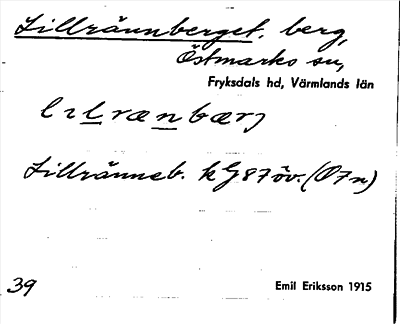 Lillrännberget, berg,
Östmarks sn,
Fryksdals hd, Värmlands län
Lillränneb. kG87öv. (O7n)
39
Emil Eriksson 1915